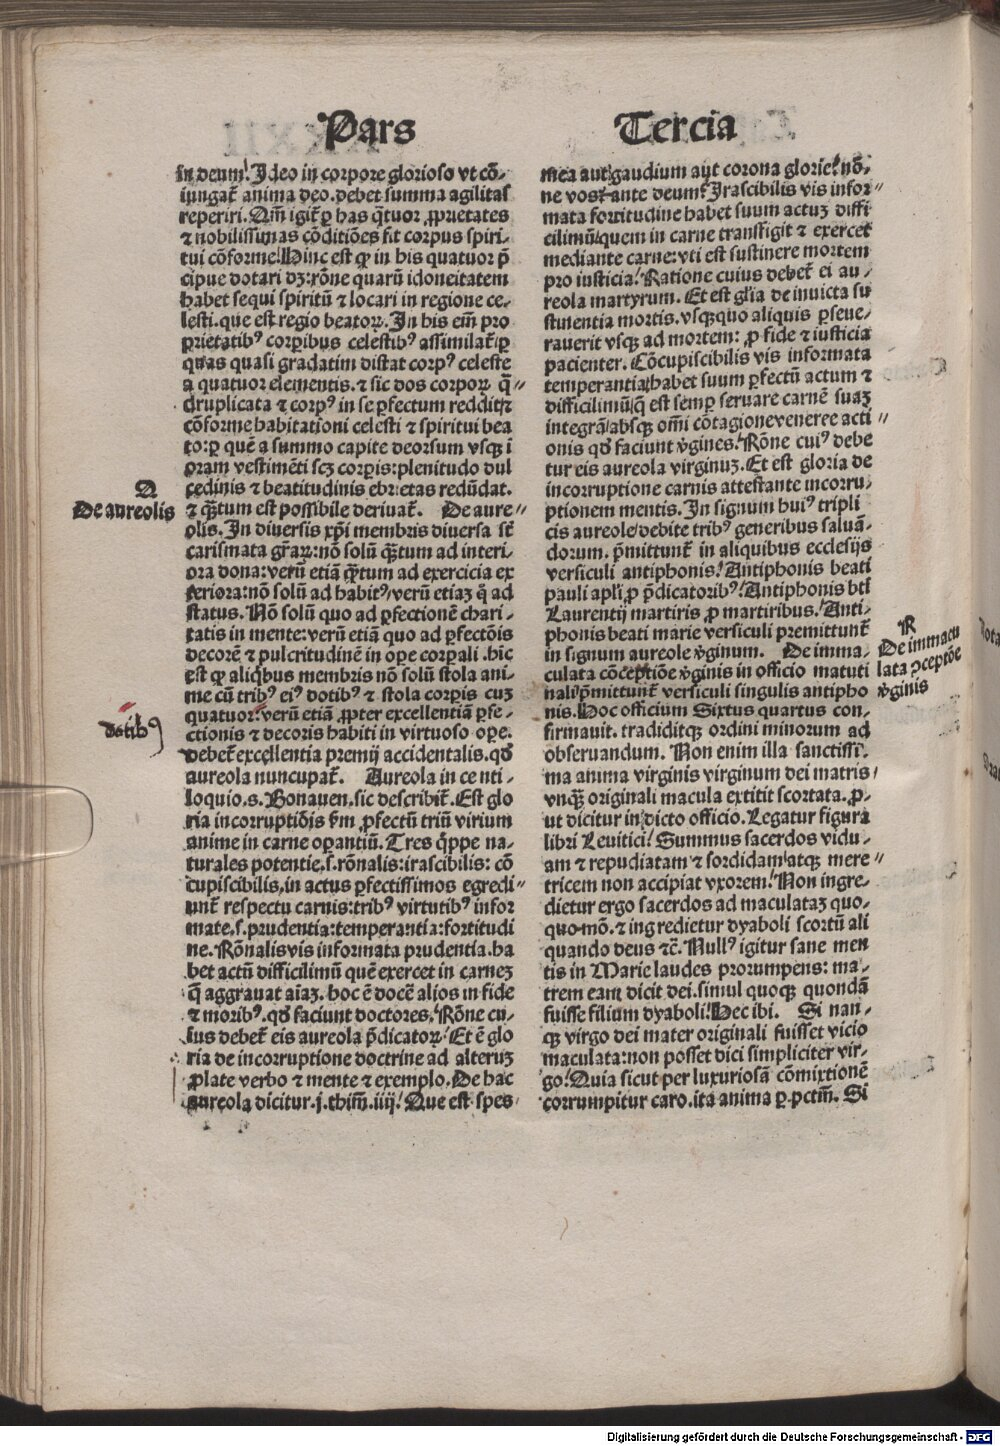 Pars
Tercia
in deum. Ideo in corpore glorioso vt cō-
iungat̄ anima deo. debet summa agilitas
reperiri. Am̄ igit̄ ꝑ has q̄tuor ꝓprietates
⁊ nobilissimas cōditiōes fit corpus spiri-
tui cōforme. Hinc est ꝙ in his quatuor p̄
cipue dotari dꝫ: rōne quarū idoneitatem
habet sequi spiritū ⁊ locari in regione ce-
lesti. que est regio beatoꝝ. In his em̄ pro
prietatibꝰ corꝑibus celestibꝰ assimilat̄/ꝑ
quas quasi gradatim distat corpꝰ celeste
a quatuor elementis. ⁊ sic dos corpoꝝ q̄-
druplicata ⁊ corpꝰ in se ꝑfectum reddit/⁊
cōforme habitationi celesti ⁊ spiritui bea
to: ꝑ quē a summo capite deorsum vsqꝫ ī
oram vestimēti scꝫ corꝑis: plenitudo dul
cedinis ⁊ beatitudinis ebrietas redūdat.
⁊ qꝫtum est possibile deriuat̄. De aure-
A
De aureolis
olis. In diuersis xp̄i membris diuersa st̄
carismata gr̄aꝝ: nō solū qꝫtum ad interi-
ora dona: verū etiā qꝫtum ad exercicia ex
teriora: nō solū ad habitꝰ/verū etiaꝫ q̄ ad
status. Nō solū quo ad ꝑfectionē chari-
tatis in mente: verū etiā quo ad ꝑfectōis
decorē ⁊ pulcritudinē in oꝑe corꝑali. hīc
est ꝙ aliqbus membris nō solū stola ani-
me cū tribꝰ eiꝰ dotibꝰ ⁊ stola corꝑis cuꝫ
dotibꝰ
quatuor: verū etiā ꝓpter excellentiā ꝑfe-
ctionis ⁊ decoris habiti in virtuoso oꝑe.
debet̄ excellentia premij accidentalis. qd̄
aureola nuncupat̄. Aureola in centi-
loquio. s. Bonauen. sic describit̄. Est glo
ria incorruptiōis ẜm ꝑfectū triū virium
anime in carne oꝑantiū. Tres q̄ppe na-
turales potentie. s. rōnalis: irascibilis: cō
cupiscibilis, in actus ꝑfectissimos egredi-
unt̄ respectu carnis: tribꝰ virtutibꝰ infor
mate. s. prudentia: temperantia: fortitudi
ne. Rōnalis vis informata prudentia. ha
bet actū difficilimū quē exercet in carneꝫ
q̄ aggrauat aīaꝫ. hoc ē docē alios in fide
⁊ moribꝰ. qd̄ faciunt doctores. Rōne cu-
ius debet̄ eis aureola p̄dicatoꝝ. Et ē glo
ria de incorruptione doctrine ad alteruꝫ
ꝓlate verbo ⁊ mente ⁊ exemplo. De hac
aureola dicitur. j. thim̄. iiij. Que est spes
mea aut gaudium aut corona glorie? nō-
ne vos ante deum? Irascibilis vis infor-
mata fortitudine habet suum actuꝫ diffi
cilimū/quem in carne transfigit ⁊ exercet
mediante carne: vti est sustinere mortem
pro iusticia. Ratione cuius debet̄ ei au-
reola martyrum. Et est gl̄ia de inuicta su
stinentia mortis. vsqꝫquo aliquis ꝑseue-
rauerit vsqꝫ ad mortem: ꝓ fide ⁊ iusticia
pacienter. Cōcupiscibilis vis informata
temperantia/habet suum ꝑfectū actum ⁊
difficilimū/q̄ est semꝑ seruare carnē suaꝫ
integrā/absqꝫ om̄i cōtagione veneree acti-
onis qd̄ faciunt v̄gines. Rōne cuiꝰ debe
tur eis aureola virginuꝫ. Et est gloria de
incorruptione carnis attestante incorru-
ptionem mentis. In signum huiꝰ tripli
cis aureole/debite tribꝰ generibus saluā-
dorum. p̄mittunt̄ in aliquibus ecclesijs
versiculi antiphonis. Antiphonis beati
pauli apl̄i ꝓ p̄dicatoribꝰ. Antiphonis btī
Laurentij martiris ꝓ martiribus. Anti-
phonis beati marie versiculi premittunt̄
in signum aureole v̄ginum. De imma-
R
De immacu
lata ꝯceptōe
v̄ginis
culata cōceptiōe v̄ginis in officio matuti
nali/p̄mittunt̄ versiculi singulis antipho
nis. Hoc officium Sixtus quartus con-
firmauit. tradiditqꝫ ordini minorum ad
obseruandum. Non enim illa sanctissi-
ma anima virginis virginum dei matris
vnqꝫ originali macula extitit scortata. ꝓ-
ut dicitur in dicto officio. Legatur figura
libri Leuitici. Summus sacerdos vidu-
am ⁊ repudiatam ⁊ sordidam atqꝫ mere-
tricem non accipiat vxorem. Non ingre-
dietur ergo sacerdos ad maculataꝫ quo-
quo mō. ⁊ ingredietur dyaboli scortū ali
quando deus ⁊c̄. Nullꝰ igitur sane men
tis in Marie laudes prorumpens: ma-
trem eam dicit dei. simul quoqꝫ quondā
fuisse filium dyaboli. Hec ibi. Si nan-
qꝫ virgo dei mater originali fuisset vicio
maculata: non posset dici simpliciter vir-
go. Quia sicut per luxuriosā cōmixtionē
corrumpitur caro. ita anima ꝑ pctm̄. Si
Digitalisierung gefördert durch die Deutsche Forschungsgemeinschaft - DFG